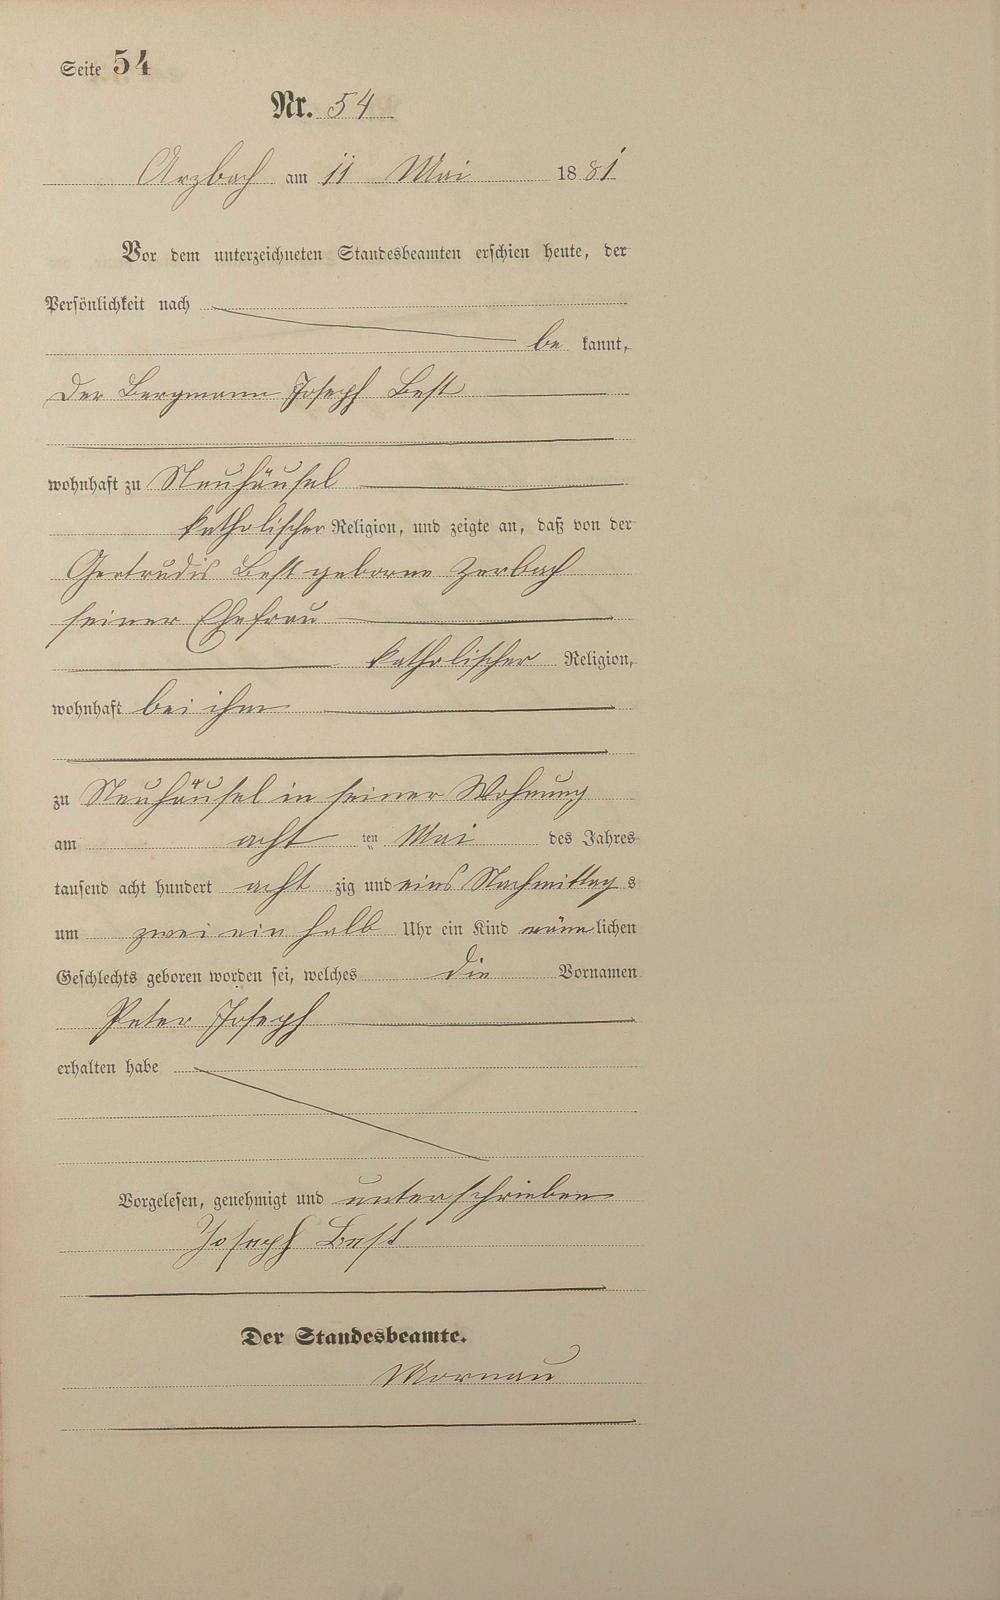 Seite 54
Nr. 54
Arzbach am 11 Mai 1881
Vor dem unterzeichneten Standesbeamten erschien heute, der
Persönlichkeit nach
be kannt,
der Bergmann Joseph Best
wohnhaft zu Neuhäusel
katholischer Religion, und zeigte an, daß von der
Gertrudis Best geborne Zerbach
seiner Ehefrau
katholischer Religion,
wohnhaft bei ihm
zu Neuhäusel in seiner Wohnung
am acht ten Mai des Jahres
tausend acht hundert acht zig und eins Nachmittag s
um zwei ein halb Uhr ein Kind männlichen
Geschlechts geboren worden sei, welches die Vornamen
Peter Joseph
erhalten habe
Vorgelesen, genehmigt und unterschrieben
Joseph Best
Der Standesbeamte.